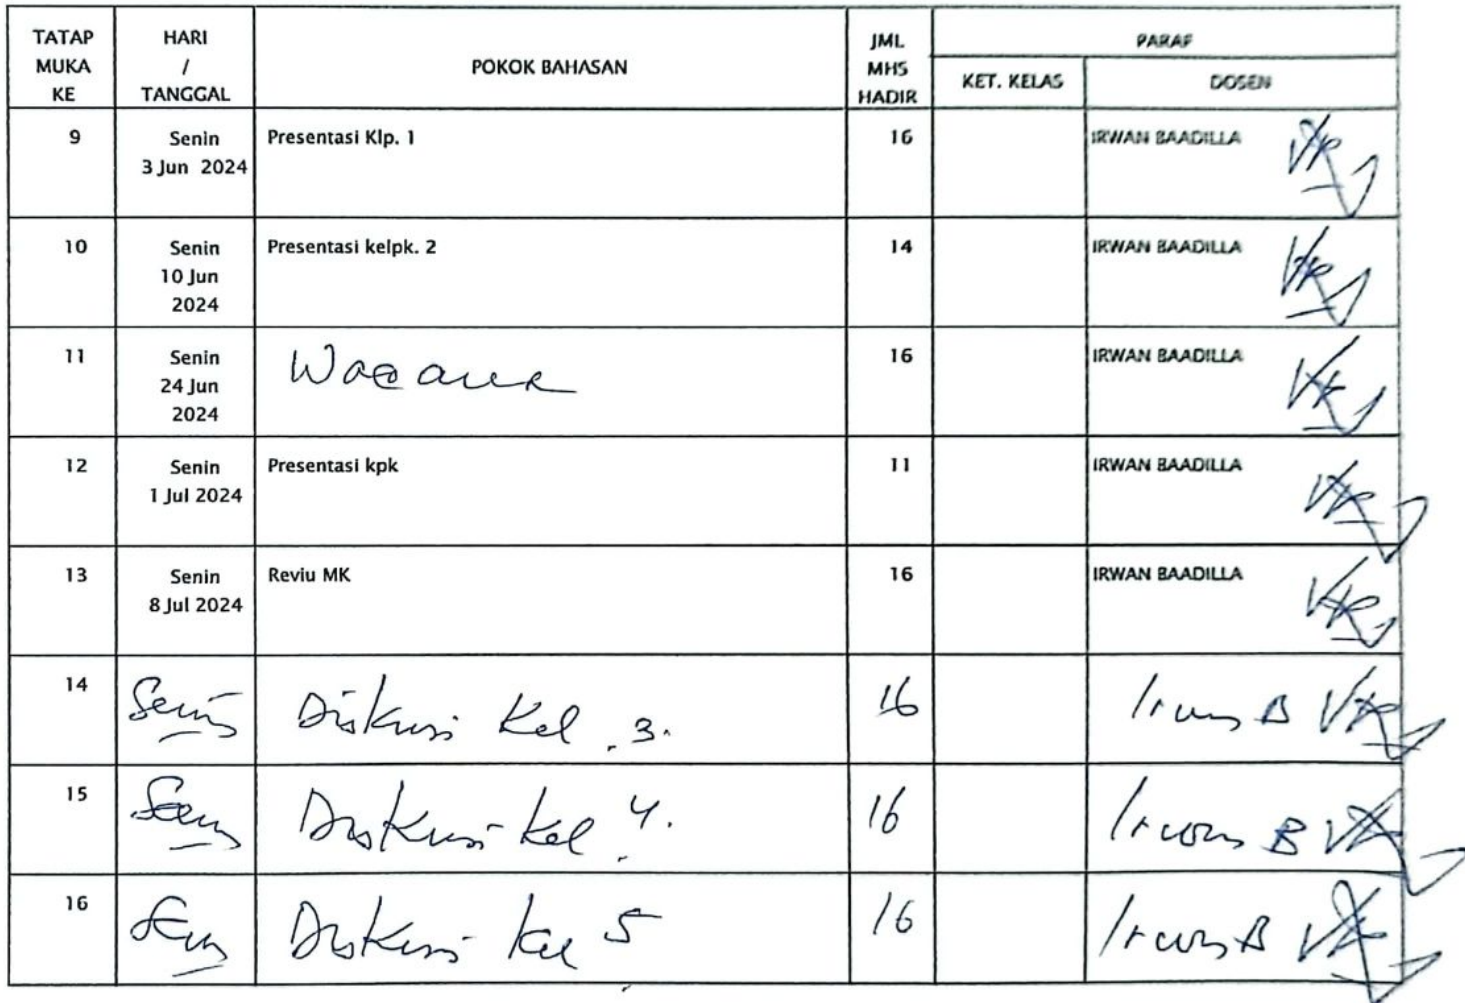 TATAP MUKA KE | HARI / TANGGAL | POKOK BAHASAN | JML MHS HADIR | PARAF
KET. KELAS | DOSEN
9 | Senin 3 Jun 2024 | Presentasi Klp. 1 | 16 | | IRWAN BAADILLA
10 | Senin 10 Jun 2024 | Presentasi kelpk. 2 | 14 | | IRWAN BAADILLA
11 | Senin 24 Jun 2024 | Wacana | 16 | | IRWAN BAADILLA
12 | Senin 1 Jul 2024 | Presentasi kpk | 11 | | IRWAN BAADILLA
13 | Senin 8 Jul 2024 | Reviu MK | 16 | | IRWAN BAADILLA
14 | Senin | Diskusi Kel. 3. | 16 | | Irwan B
15 | Senin | Diskusi Kel. 4. | 16 | | Irwan B
16 | Senin | Diskusi Kel 5 | 16 | | Irwan B